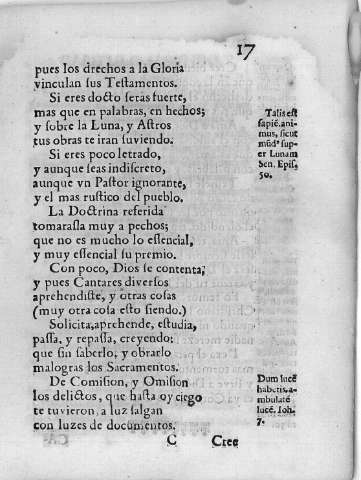 17
pues los drechos a la Gloria
vinculan sus Testamentos.
Si eres docto seràs fuerte,
mas que en palabras, en hechos;
y sobre la Luna, y Astros
tus obras te iran suviendo.
Si eres poco letrado,
y aunque seas indiscreto,
aunque vn Pastor ignorante,
y el mas rustico del pueblo.
La Doctrina referida
tomarasla muy a pechos;
que no es mucho lo essencial,
y muy essencial su premio.
Con poco, Dios se contenta;
y pues Cantares diversos
aprehendiste, y otras cosas
(muy otra cosa esto siendo.)
Solicita, aprehende, estudia,
passa, y repassa, creyendo:
que sin saberlo, y obrarlo
malogras los Sacramentos.
De Comision, y Omision
los delictos, que hasta oy ciego
te tuvieron, a luz salgan
con luzes de documentos.
C Cree
Talis est
sapiē. ani-
mus, sicut
mūd⁹ sup-
er Lunam
Sen. Epis.
50.
Dum lucē
habetis. a-
mbulate
lucē. Ioh.
7.